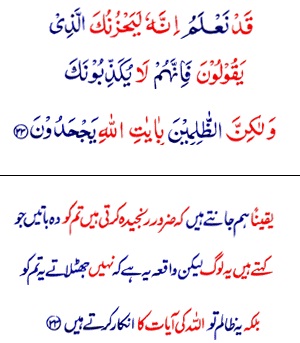 قَدْ نَعْلَمُ اِنَّهٗ لَيَحْزُنُكَ الَّذِىْ
يَقُوْلُوْنَ فَاِنَّهُمْ لَا يُكَذِّبُوْنَكَ
وَلٰكِنَّ الظّٰلِمِيْنَ بِاٰيٰتِ اللّٰهِ يَجْحَدُوْنَ ﴿۳۳﴾
یقیناً ہم جانتے ہیں کہ ضرور رنجیدہ کرتی ہیں تم کو وہ باتیں جو
کہتے ہیں یہ لوگ لیکن واقعہ یہ ہے کہ نہیں جھٹلاتے یہ تم کو
بلکہ یہ ظالم تو اللہ کی آیات کا انکار کرتے ہیں ﴿۳۳﴾